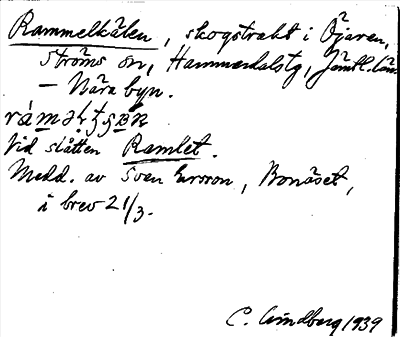 Rammelkälen, skogstrakt i Öjaren,
Ströms sn, Hammerdals tg, Jämtl. län.
— Nära byn.
Vid slåtten Ramlet.
Medd. av Sven Ersson, Bonäset,
i brev 21/3.
C. Lindberg 1939